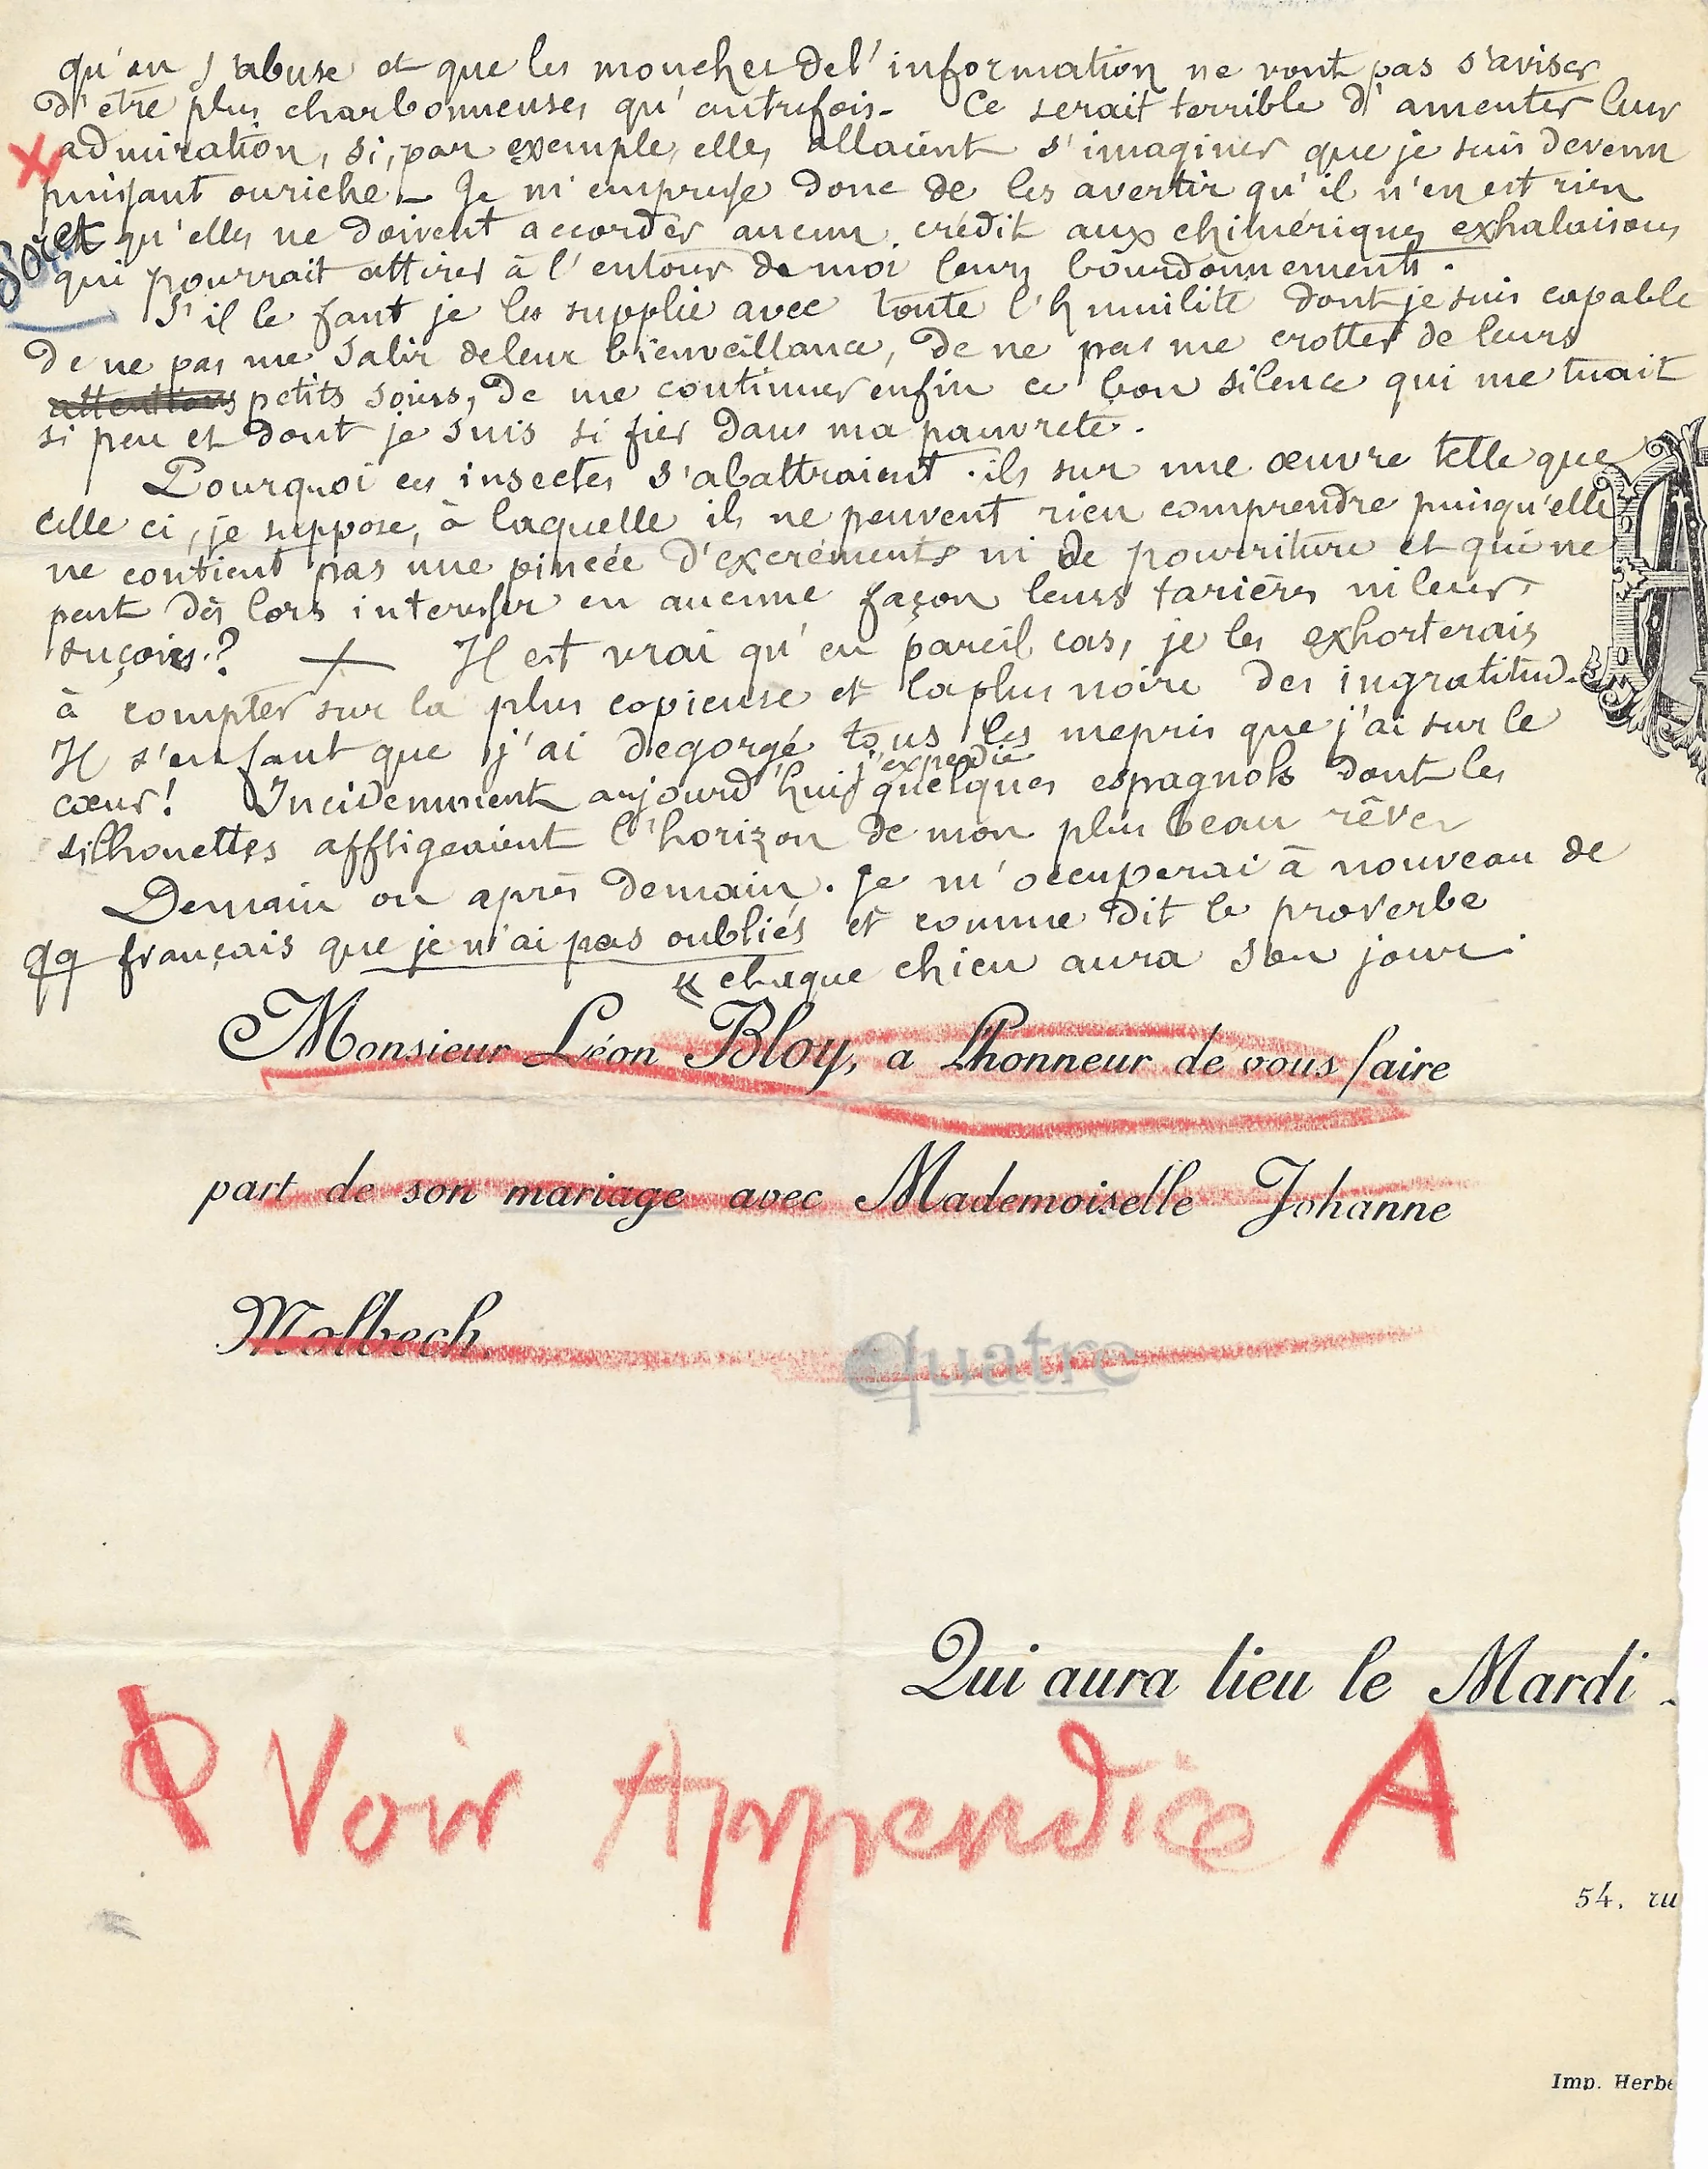 qu'on s'abuse et que les mouches de l'information ne vont pas s'aviser
d'être plus charbonneuses qu'autrefois - Ce serait terrible d'ameuter leur
X admiration, si, par exemple, elles allaient s'imaginer que je suis devenu
puissant ou riche - Je m'empresse donc de les avertir qu'il n'en est rien
et qu'elles ne doivent accorder aucun crédit aux chimériques exhalaisons
qui pourrait attirer à l'entour de moi leurs bourdonnements.
S'il le faut je les supplie avec toute l'humilité dont je suis capable
de ne pas me salir de leur bienveillance, de ne pas me crotter de leurs
attentions petits soins, de me continuer enfin ce bon silence qui me tuait
si peu et dont je suis si fier dans ma pauvreté.
Pourquoi ces insectes s'abattraient-ils sur une œuvre telle que
celle ci, je suppose, à laquelle ils ne peuvent rien comprendre puisqu'elle
ne contient pas une pincée d'excréments ni de pourriture et qui ne
peut dès lors interesser en aucune façon leurs tarières ni leurs
suçoirs? + Il est vrai qu'en pareil cas, je les exhorterais
à compter sur la plus copieuse et la plus noire des ingratitud.
Il s'en faut que j'ai degorgé tous les mepris que j'ai sur le
cœur! Incidemment aujourd'hui j'expedie quelques espagnols dont les
silhouettes affligeaient l'horizon de mon plus beau rêve
Demain ou après demain. Je m'occuperai à nouveau de
qq français que je n'ai pas oubliés et comme dit le proverbe
« chaque chien aura son jour.
A
Monsieur Léon Bloy, a l'honneur de vous faire
part de son mariage avec Mademoiselle Johanne
Molbech.
Quatre
Qui aura lieu le Mardi
Voir Appendice A
54, ru
Imp. Herbe